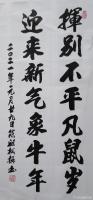 揮别不平凡鼠岁
迎来新气象牛年
二〇二一年一月廿九日